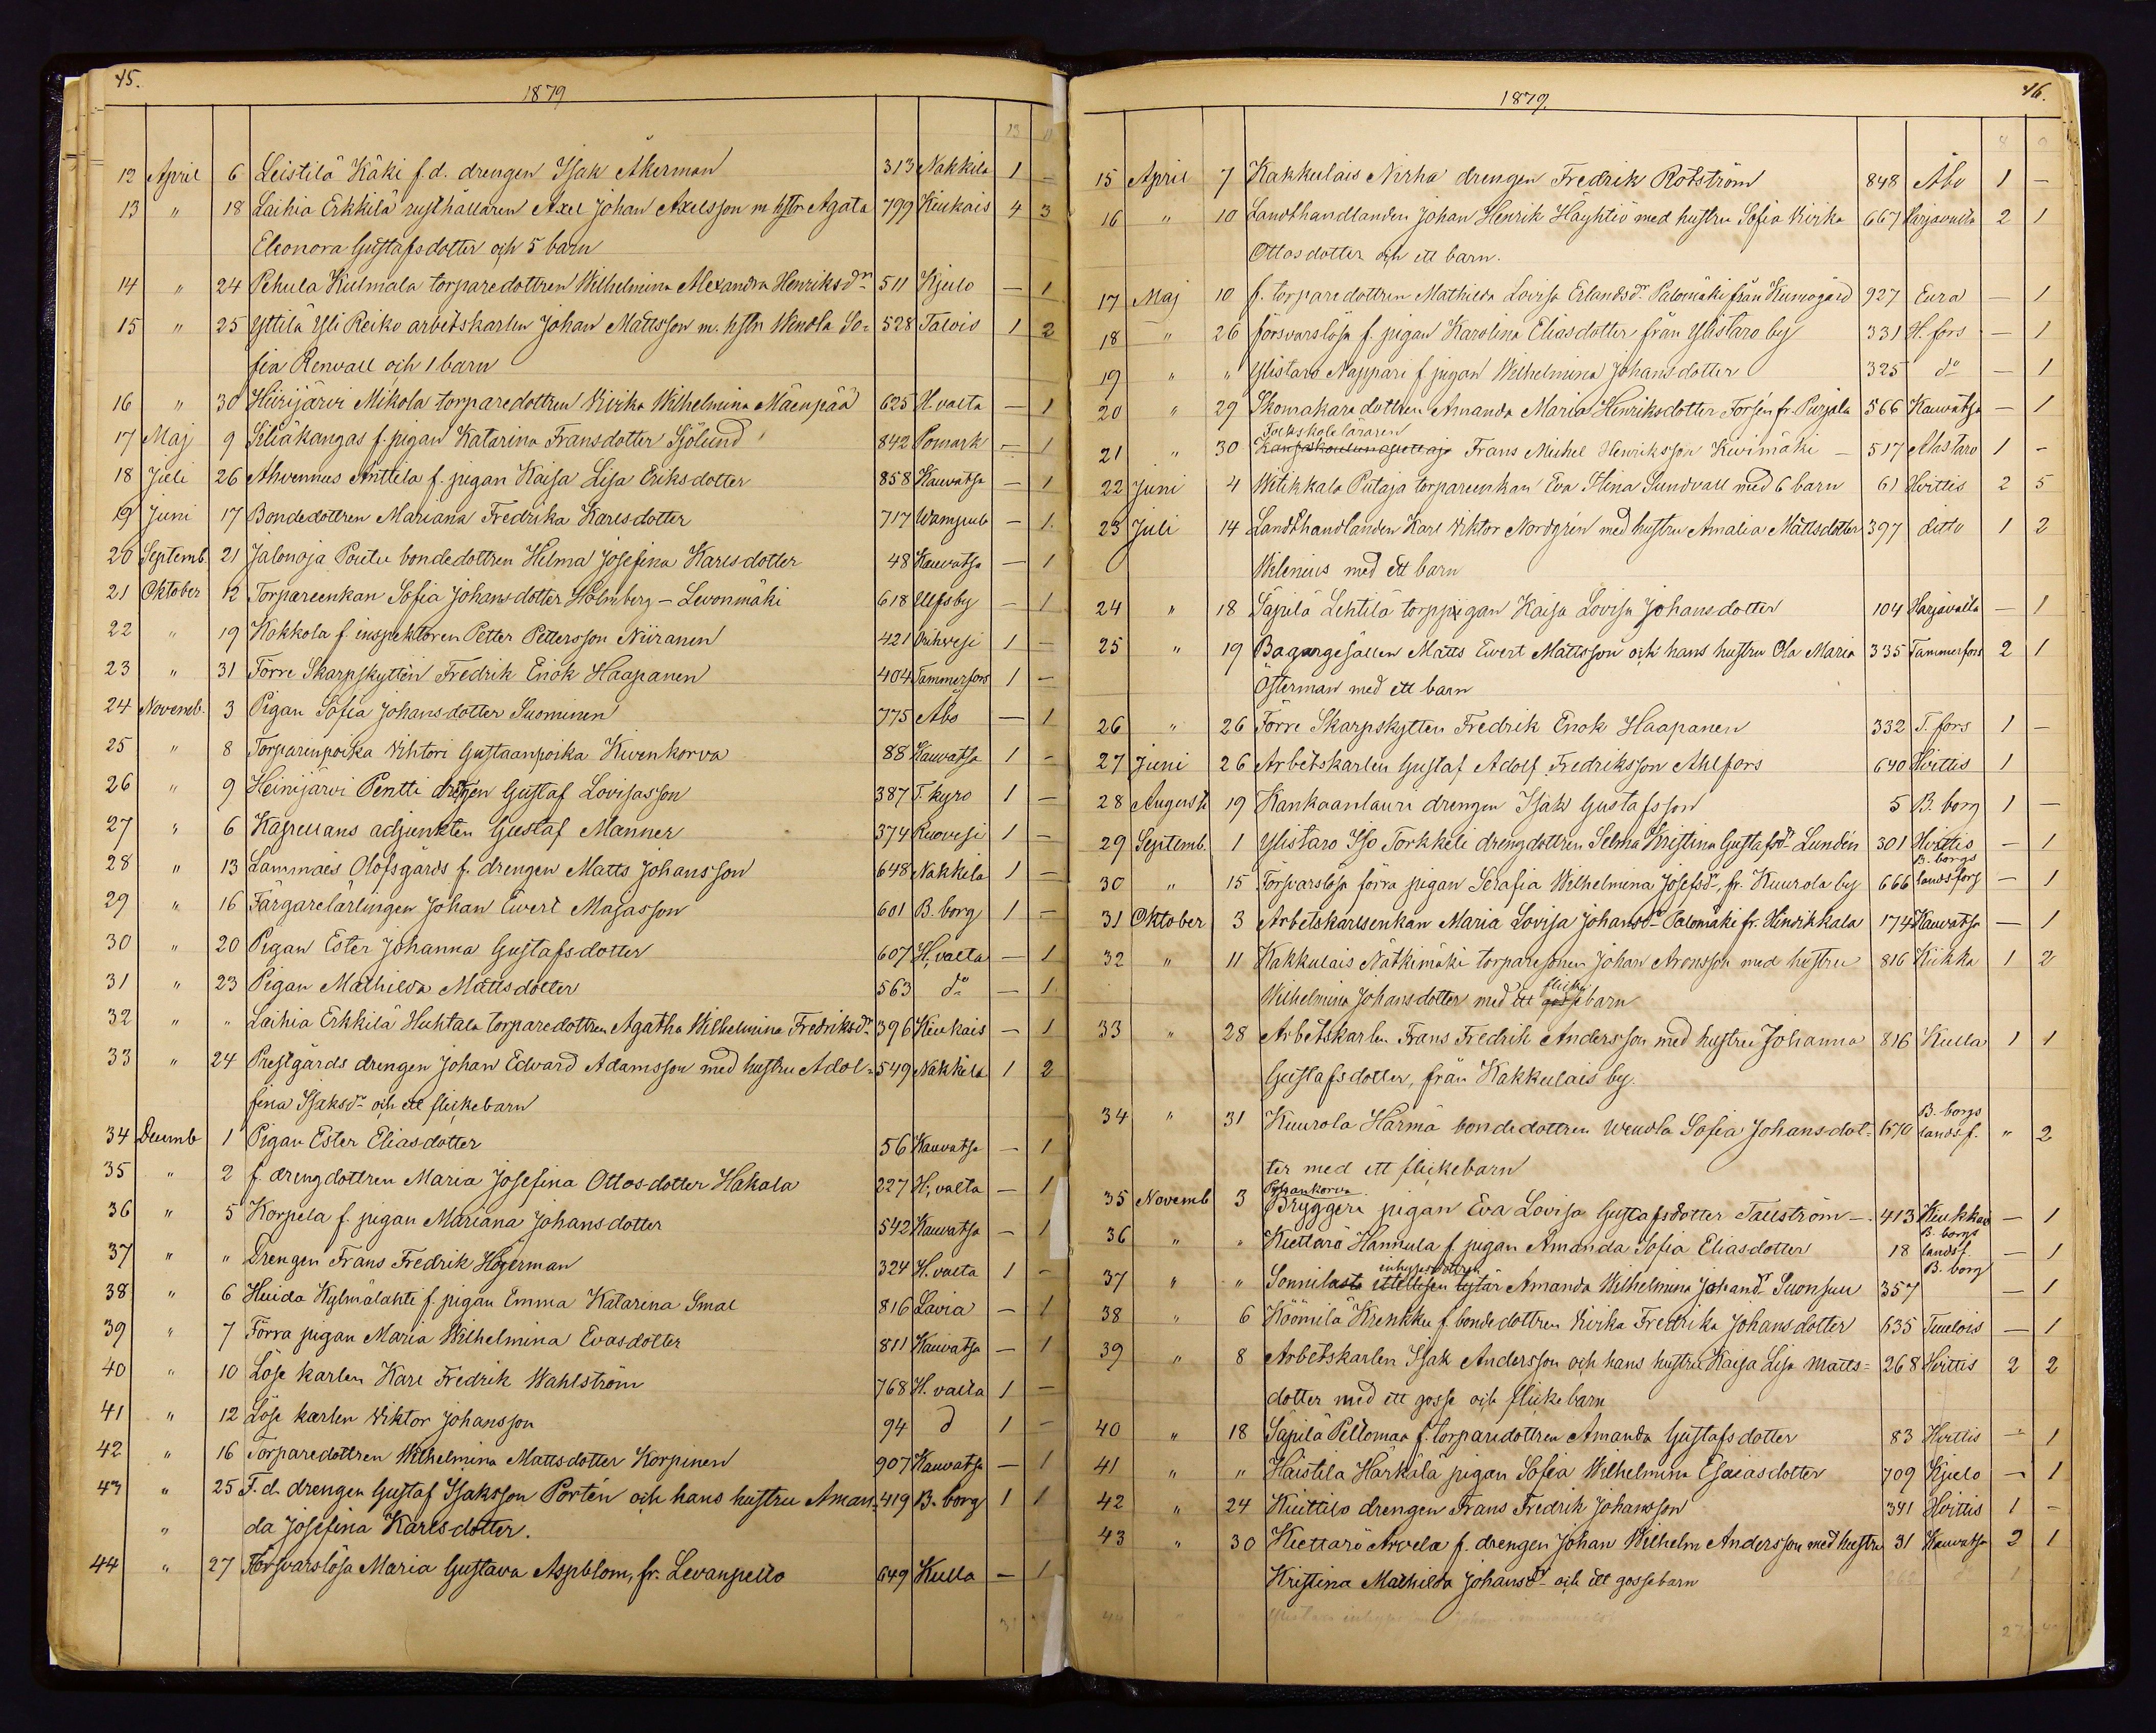 45.
1879
13
12 April 6 Leistilä Käki f.d. drengen Isak Åkerman 313 Nakkila 1 —
13 " 18 Laihia Erkkilä rusthållaren Axel Johan Axelsson m hstr Agata 799 Kiukais 4 3
Eleonora Gustafsdotter och 5 barn
14 " 24 Pehula Kulmala torparedottren Wilhelmina Alexandra Henriksdr 511 Kjulo — 1
15 " 25 Yttilä Yli Reiko arbetskarlen Johan Mattsson m. hstr Wendla So= 528 Talois 1 2
fia Renvall och 1 barn
16 " 30 Hiirijärvi Mikola torparedottren Wirka Wilhelmina Mäenpää 625 H.valta — 1
17 Maj 9 Siliäkangas f. pigan Katarina Fransdotter Sjölund 842 Pomark — 1
18 Juli 26 Ahvennus Anttila f. pigan Kaisa Lisa Eriksdotter 858 Kauvatsa — 1
19 Juni 17 Bondedottren Mariana Fredrika Karlsdotter 717 Wampula — 1.
20 Septemb. 21 Jalonoja Poutu bondedottren Hilma Josefina Karlsdotter 48 Kauvatsa — 1
21 Oktober 12 Torpareenkan Sofia Johansdotter Holmberg – Levonmäki 618 Ulfsby — 1
22 " 19 Kokkola f. inspektoren Petter Pettersson Niiranen 421 Orihvesi 1 —
23 " 31 Förre Skarpskytten Fredrik Enok Haapanen 404 Tammerfors 1 —
24 Novemb. 3 Pigan Sofia Johansdotter Suominen 775 Åbo — 1
25 " 8 Torparinpoika Vihtori Gustaanpoika Kivenkorva 88 Kauvatsa 1 -
26 " 9 Heinijärvi Pentti drengen Gustaf Lovisasson 387 T. kyro 1 —
27 " 6 Kapellans adjunkten Gustaf Manner 374 Ruovesi 1 —
28 " 13 Lammais Olofsgårds f. drengen Matts Johansson 648 Nakkila 1 —
29 " 16 Färgarelärlingen Johan Evert Majasson 601 B. borg 1 —
30 " 20 Pigan Ester Johanna Gustafsdotter 607 H, valta — 1
31 " 23 Pigan Mathilda Mattsdotter 563 do — 1
32 " " Laihia Erkkilä Huhtala torparedottren Agatha Wilhelmina Fredriksdr 396 Kiukais — 1
33 " 24 Prestgårds drengen Johan Edvard Adamsson med hustru Adol= 549 Nakkila 1 2
fina Isaksdr och ett flickebarn
34 Decemb 1 Pigan Ester Eliasdotter 56 Kauvatsa — 1
35 " 2 f. drengdottren Maria Josefina Ottosdotter Hakala 227 H, valta — 1
36 " 5 Korpela f. pigan Mariana Johansdotter 542 Kauvatsa — 1
37 " " Drengen Frans Fredrik Högerman 324 H. valta 1 —
38 " 6 Huida Kylmälahti f. pigan Emma Katarina Smal 816 Lavia — 1
39 " 7 Förra pigan Maria Wilhelmina Evasdotter 811 Kauvatsa — 1
40 " 10 Löse karlen Karl Fredrik Wahlström 768 H. valta 1 —
41 " 12 Löse karlen Viktor Johansson 94 d 1 —
42 " 16 Torparedottren Wilhelmina Mattsdotter Korpinen 907 Kauvatsa — 1
43 " 25 F. d. drengen Gustaf Isaksson Portén och hans hustru Aman= 419 B. borg 1 1
" da Josefina Karlsdotter.
44 " 27 Försvarslösa Maria Gustava Aspblom, fr. Levanpelto 649 Kulla — 1
46.
1879.
4 0
15 April 7 Kakkulais Nirha drengen Fredrik Rotström 848 Åbo 1 —
16 " 10 Landthandlanden Johan Henrik Häyhtiö med hustru Sofia Wirka 667 Harjavalta 2 1
Ottosdotter och ett barn.
17 Maj 10 f. torparedottren Mathilda Lovisa Erlandsdr Palomäki från Kumogård 927 Eura — 1
18 " 26 försvarslösa f. pigan Karolina Eliasdotter från Ylistaro by 331 H. fors — 1
19 " " Ylistaro Nappari f pigan Wilhelmina Johansdotter 325 do — 1
20 " 29 Skomakaredottren Amanda Maria Henriksdotter Forsén fr. Purjala 566 Kauvatsa — 1
Folkskoleläraren
21 " 30 Kansakoulunopettaja Frans Michel Henriksson Kivimäki — 517 Alastaro 1 -
22 Juni 4 Witikkala Putaja torpareenkan Eva Stina Sundvall med 6 barn 61 Hvittis 2 5
23 Juli 14 Landthandlanden Karl Viktor Nordgrén med hustru Amalia Mattsdotter 397 ditto 1 2
Wilenius med ett barn
24 " 18 Säpilä Lehtilä torppigan Kaisa Lovisa Johansdotter 104 Harjavalta — 1
25 " 19 Bagaregesällen Matts Evert Mattsson och hans hustru Ola Maria 335 Tammerfors 2 1
Österman med ett barn
26 " 26 Förre Skarpskytten Fredrik Enok Haapanen 332 T. fors 1 —
27 Juni 26 Arbetskarlen Gustaf Adolf Fredriksson Ahlfors 640 Hvittis 1
28 Augusti 19 Kankaanlauri drengen Isak Gustafsson 5 B. borg 1 —
29 Septemb. 1 Ylistaro Iso Torkkeli drengdottren Selma Kristina Gustafsdr Lundén 301 Hvittis — 1
30 " 15 Försvarslösa förra pigan Serafia Wilhelmina Josefsdr, fr. Kuurola by 666 B. borgs landsförs — 1
31 Oktober 3 Arbetskarlsenkan Maria Lovisa Johansdr Palomäki fr. Hinrikkala 174 Kauvatsa — 1
32 " 11 Kakkulais Nätkimäki torparesonen Johan Aronsson med hustru 816 Kiikka 1 2
Wilhelmina Johansdotter med ett flicke gossebarn
33 " 28 Arbetskarlen Frans Fredrik Andersson med hustru Johanna 816 Kulla 1 1
Gustafsdotter, från Kakkulais by.
34 " 31 Kuurola Härmä bondedottren Wendla Sofia Johansdot= 670 B. borgs landsf. " 2
ter med ett flickebarn
35 Novemb 3 Bryggeri pigan Eva Lovisa Gustafsdotter Tallström —. 413 Kiukkais — 1
36 " " Kiettarö Hannula f. pigan Amanda Sofia Eliasdotter 18 B. borgs landsf. — 1
inhysesdottren
37 " " Sonnilasta ittellisen tytär Amanda Wilhelmina Johansdr Suonsuu 357 B. borg — 1
38 " 6 Köömilä Krenkku f. bondedottren Wirka Fredrika Johansdotter 635 Tuulois — 1
39 " 8 Arbetskarlen Isak Andersson och hans hustru Kaisa Lisa Matts= 268 Hvittis 2 2
dotter med ett gosse och flickebarn
40 " 18 Säpilä Peltomaa f. torparedottren Amanda Gustafsdotter 83 Hvittis — 1
41 " " Haistila Härkälä pigan Sofia Wilhelmina Esaiasdotter 709 Kjulo — 1
42 " 24 Kuittilo drengen Frans Fredrik Johansson 341 Hvittis 1 -
43 " 30 Kiettarö Arvela f. drengen Johan Wilhelm Andersson med hustru 31 Kauvatsa 2 1
Kristina Mathilda Johansdr och ett gossebarn
44